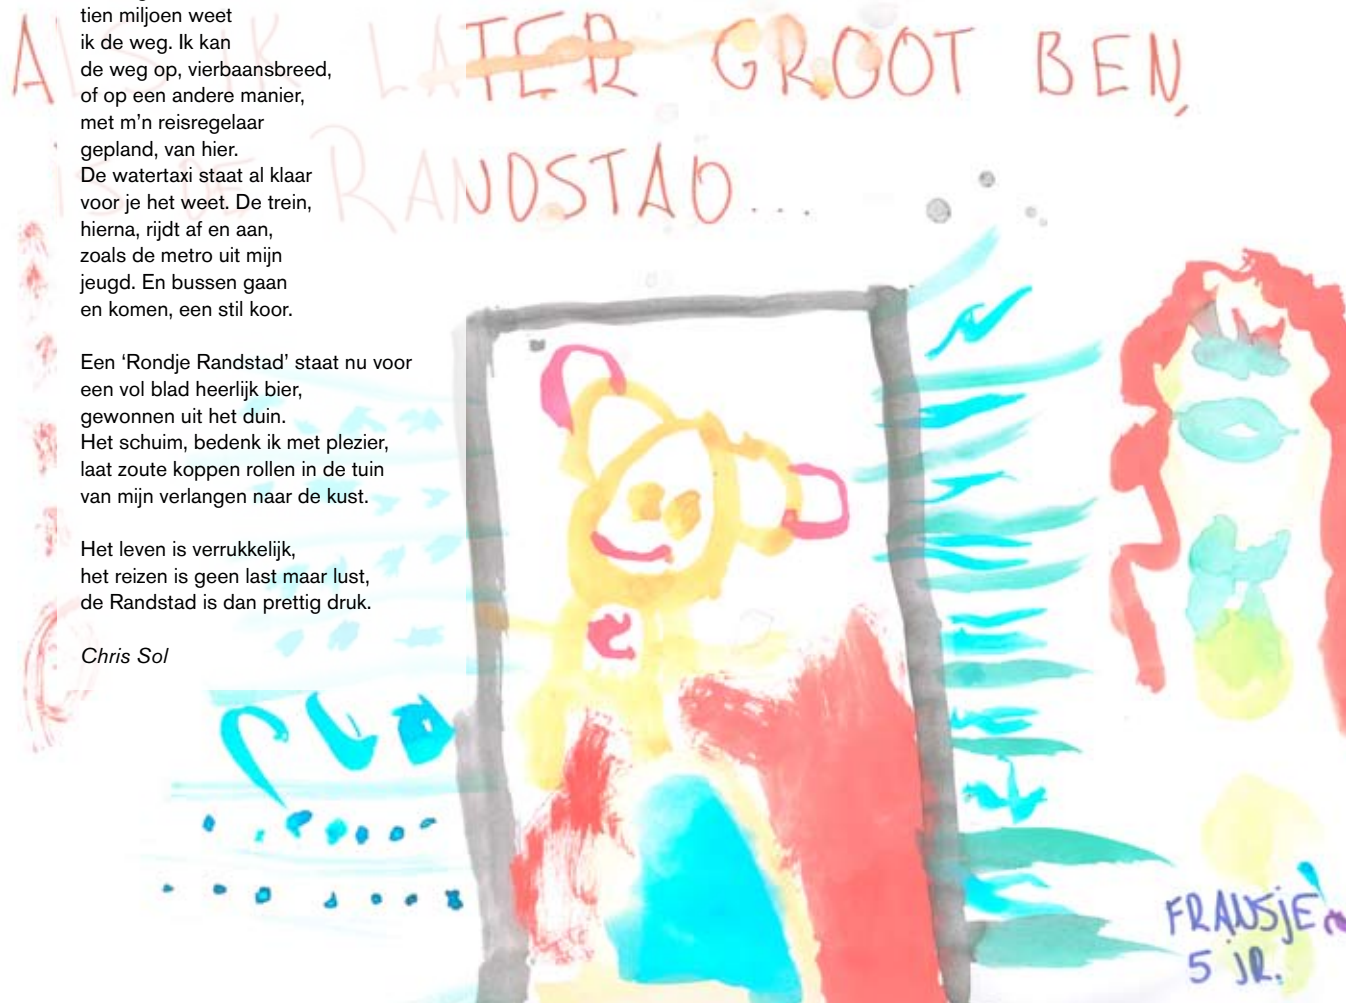 tien miljoen weet
ik de weg. Ik kan
de weg op, vierbaansbreed,
of op een andere manier,
met m’n reisregelaar
gepland, van hier.
De watertaxi staat al klaar
voor je het weet. De trein,
hierna, rijdt af en aan,
zoals de metro uit mijn
jeugd. En bussen gaan
en komen, een stil koor.

Een ‘Rondje Randstad’ staat nu voor
een vol blad heerlijk bier,
gewonnen uit het duin.
Het schuim, bedenk ik met plezier,
laat zoute koppen rollen in de tuin
van mijn verlangen naar de kust.

Het leven is verrukkelijk,
het reizen is geen last maar lust,
de Randstad is dan prettig druk.

Chris Sol

ALS IK LATER GROOT BEN,
IS DE RANDSTAD...

FRANSJE
5 JR.